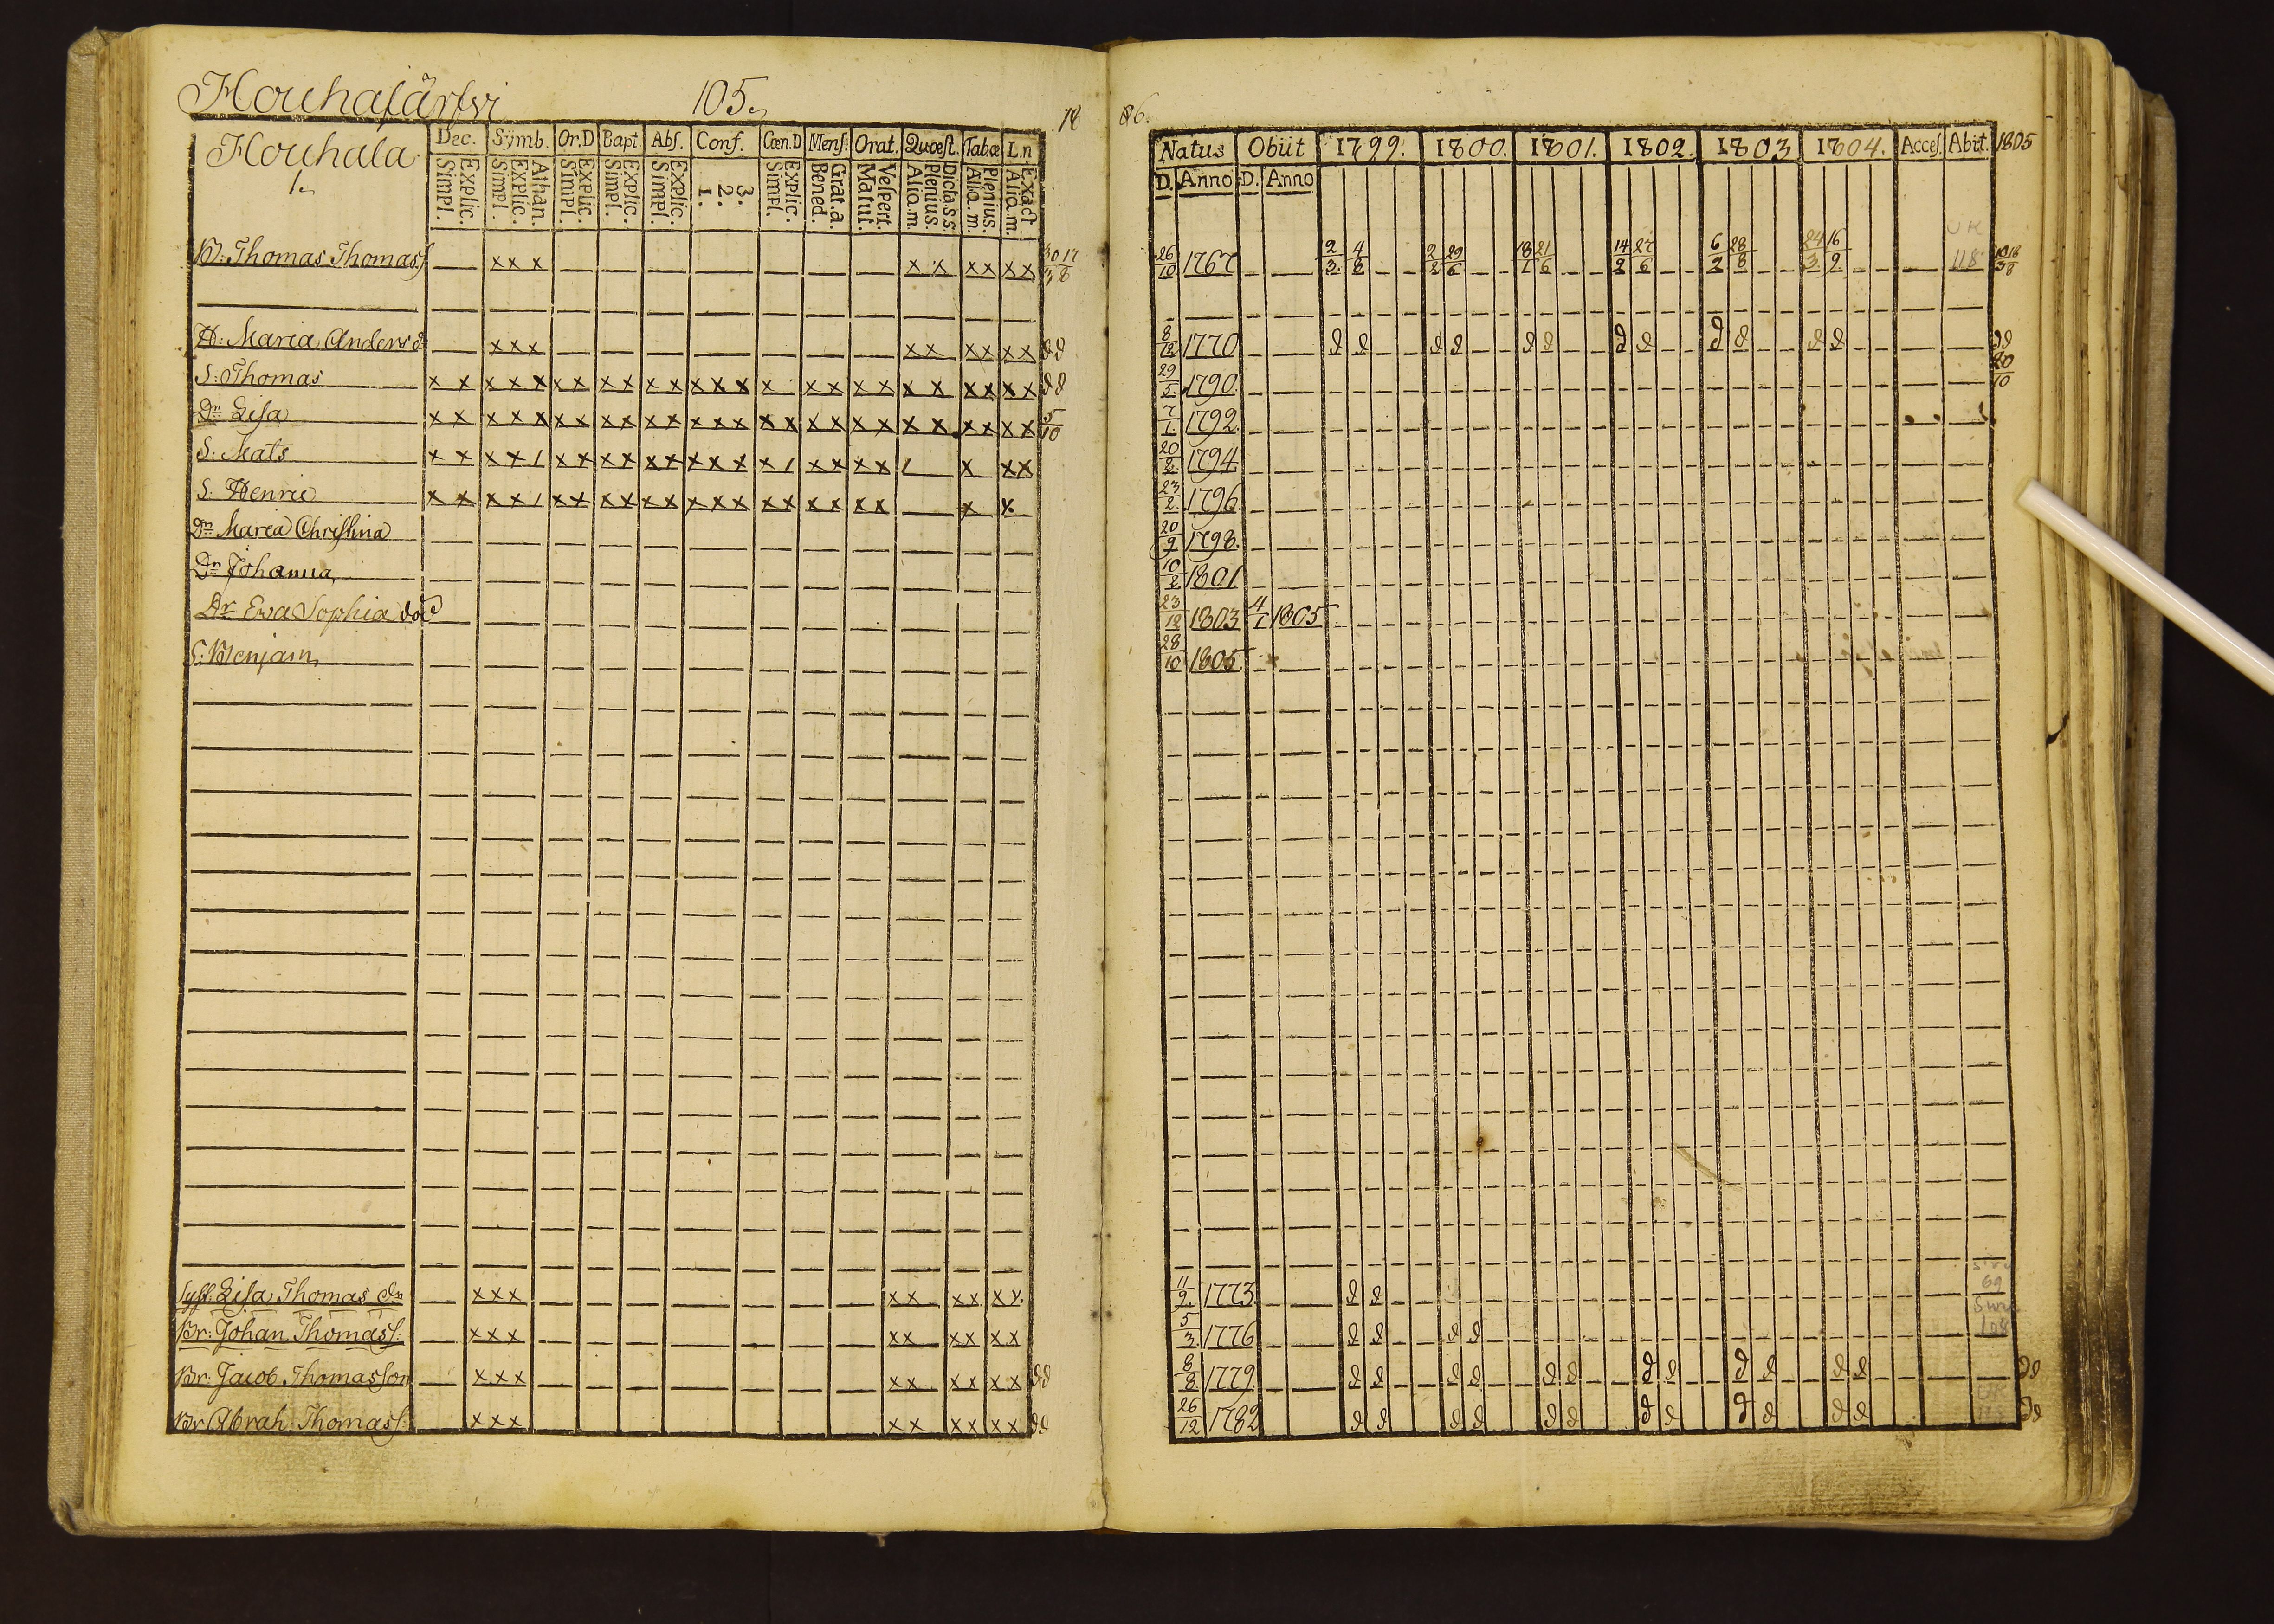 Houhajärfwi 105.
Houhala
1.
Dec. Symb. Or.D Bapt. Abs. Conf. Cœn.D Mens. Orat. Quœst. Tabœ L.n
Explic. Simpl. Athan. Explic. Simpl. Explic. Simpl. Explic. Simpl. Explic. Simpl. 3. 2. 1. Explic. Simpl. Grat.a. Bened. Vespert. Matut. Dicta s.s. Plenius. Alia.m. Plenius. Alia.m. Exact Alia.m.
B: Thomas Thomass. x x x x x x x x x 30/3 17/6
H: Maria Andersd. x x x x x x x x x d d
S: Thomas x x x x x x x x x x x x x x x x x x x x x x x x x d d
Dr. Lisa x x x x x x x x x x x x x x x x x x x x x x x x x x 5/10
S: Mats x x x x / x x x x x x x x x x / x x x x / x x x
S: Henric x x x x / x x x x x x x x x x x x x x x x x
Dr. Maria Christina
Dr. Johanna
Dr. Ewa Sophia död
S: Benjam.
Syst. Lisa Thomas dr x x x x x x x x x
Br: Johan Thomass: x x x x x x x x x
Br: Jacob Thomasson x x x x x x x x x d d
Br Abrah. Thomass: x x x x x x x x x d d
86.
Natus Obiit 1799. 1800. 1801. 1802. 1803 1804. Acces. Abit. 1805
D. Anno D. Anno
26/10 1767 2/3 4/8 2/2 29/6 18/1 21/6 14/2 27/6 6/2 28/8 24/3 16/9 118
8/12 1770 d d d d d d d d d d d d d d
29/5 1790. 20/10
7/1 1792.
20/2 1794
23/2 1796
20/9 1798.
10/2 1801
23/12 1803 4/1 1805
28/10 1805
11/9 1773 d d 69
5/3 1776 d d d d 108
8/8 1779 d d d d d d d d d d d d d d
26/12 1782 d d d d d d d d d d d d d d